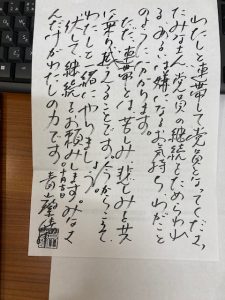 わたしと連帯して党員となってくださっ
たみなさん、党員の継続をためらわれ
る、あるいは嫌になるお気持ち、わがこと
のようにわかります。
ただ、連帯とは、苦しみ、悲しみを共
に乗り越えることです。だからこそ
わたしと一緒にやりましょう。
伏して、継続をお頼みします。みなさ
んだけがわたしの力です。